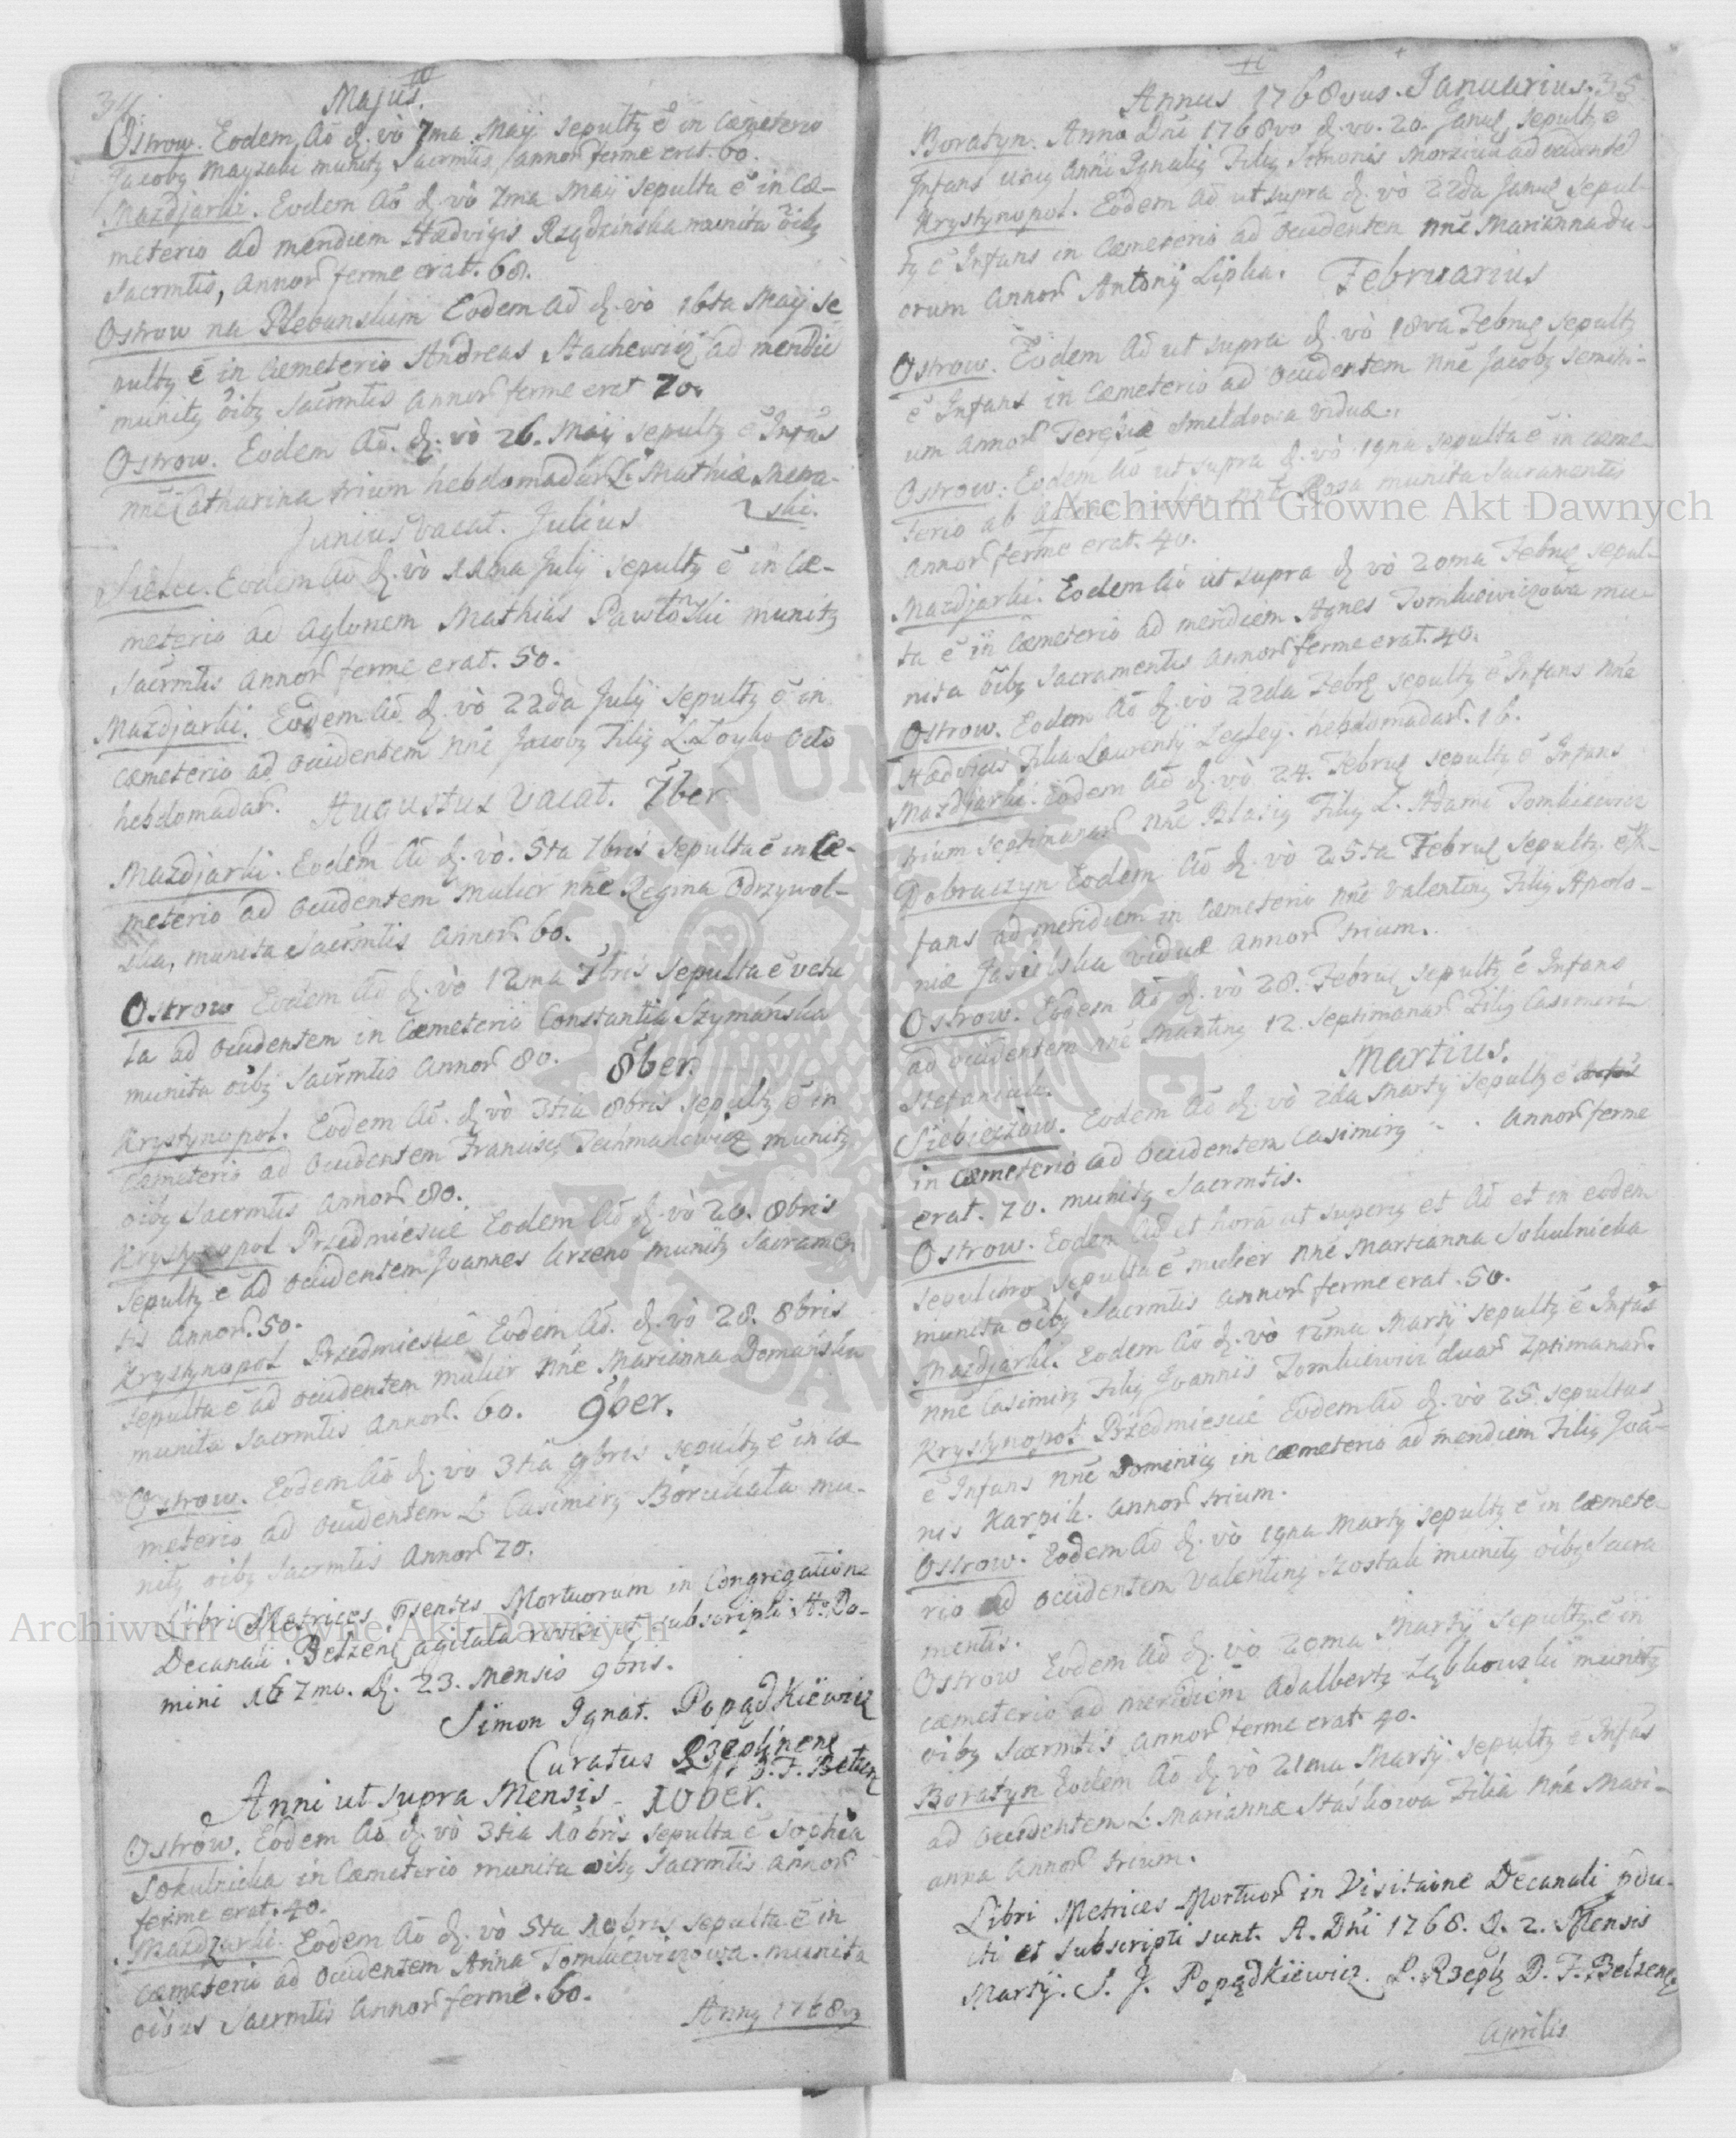 34.
Majus.
Ostrow. Eodem Aō d. vò 7ma Maij sepultq ē in Cæmeterio
Jacobq Mayzak munitq Sacrmtis, annor ferme erat. 60.
Mazdjarki. Eodem Aō d. vò 7ma Maij sepulta ē in Cæ-
meterio ad meridiem Hædvigis Rządzinska munita oībq
Sacrmtis, annor ferme erat. 68.
Ostrow na Plebanskim Eodem Ad d. vò 16ta Maij se
pultq ē in Cæmeterio Andreas Stachewicz ad meridiē
munitq oībq Sacrmtis annor ferme erat 70.
Ostrow. Eodem Aō. d. vò 26. Maij sepultq ē Infās
nnē Catharina trium hebdomadar L. Mathiæ
ski.
Junius vacat. Julius
Sielec. Eodem Aō d. vò 11ma Julij sepultq ē in Cæ-
meterio ad Aqlonem Mathias Pawłoski munitq
Sacrmtis annor ferme erat. 50.
Mazdjarki. Eodem Aō d. vò 22da Julij sepultq ē in
Cæmeterio ad occidentem nnē Jacobq Filiq L. Łoyko octo
hebdomadar. Augustus vacat. 7ber
Mazdjarki. Eodem Aō d. vò. 5ta 7bris sepulta ē in Cæ-
meterio ad occidentem mulier nnē Regina Odrzywol-
ska, munita Sacrmtis annor. 60.
Ostrow Eodem Aō d. vò 12ma 7bris sepulta ē vetu
la ad occidentem in Cæmeterio Constantia Szymańska
munita oībq Sacrmtis annor 80. 8ber.
Krystynopol. Eodem Aō. d. vò 3tia 8bris sepultq ē in
Cæmeterio ad occidentem Franciscq Techmanowicz munitq
oībq Sacrmtis annor 80.
Krystynopol Przedmiescie Eodem Aō d. vò 20. 8bris
sepultq ē ad occidentem Joannes Urzeno munitq Sacramen
tis annor. 50.
Krystynopol Przedmiescie Eodem Aō. d. vò 28. 8bris
sepulta ē ad occidentem mulier nnē Marianna Domańska
munita Sacrmtis annor. 60. 9ber.
Ostrow. Eodem Aō d. vò 3tia 9bris sepultq ē in Cæ
meterio ad occidentem L. Casimirq Boruchała mu-
nitq oībq Sacrmtis annor 70.
Libri Metrices p̄sentes Mortuorum in Congregatione
Decanali Belzenq agitata revisi et subscripti Aō Do-
mini 1767mo. D. 23. Mensis 9bris.
Simon Ignat. Popądkiewicz
Curatus Rzeplinenq
D. F. Belzenq
Anni ut supra Mensis 10ber.
Ostrow. Eodem Aō d. vò 3tia 10bris sepulta ē Sophia
Sokulnicka in Cæmeterio munita oībq Sacrmtis annor
ferme erat. 40.
Mazdzarki. Eodem Aō d. vò 5ta 10bris sepulta ē in
Cæmeterio ad occidentem Anna Tomkiewiczowa munita
oibus Sacrmtis annor ferme. 60.
Annq 1768vq
35.
Annus 1768vus. Januarius.
Boratyn. Anno Dnī 1768vo d. vo. 20. Januq sepultq ē
Infans uniq Anni Ignatiq Filiq Simonis ad occidentē
Krystynopol. Eodem Ad ut supra d. vò 22da Januq sepul-
tq ē Infans in Cæmeterio ad occidentem nnē Marianna du-
orum annor Antonij Lipka. Februarius
Ostrow. Eodem Aō ut supra d. vò 18va Februq sepultq
ē Infans in Cæmeterio ad occidentem nnē Jacobq
um annor Teresiæ Smeldowa viduæ.
Ostrow. Eodem Aō ut supra d. vò 19na sepulta ē in cæme-
terio ab nnē Rosa munita Sacramentis
annor ferme erat. 40.
Mazdjarki. Eodem Aō ut supra d. vò 20ma Februq sepul-
ta ē in Cæmeterio ad meridiem Agnes Tomkiewiczowa mu-
nita oībq Sacramentis annor ferme erat. 40.
Ostrow. Eodem Aō d. vò 22da Febrq sepultq ē Infans nnē
Hædvigis Filia Laurentij Legley. hebdomadar. 16.
Mazdjarki. Eodem Aō d. vò 24. Februq sepultq ē Infans
trium septimanar nnē Blasiq Filiq L. Adami Tomkiewicz
Dobraczyn Eodem Aō d. vò 25ta Februq sepultq ē In-
fans ad meridiem in Cæmeterio nnē Valentinq Filiq Apolo-
niæ Jasielska viduæ annor trium.
Ostrow. Eodem Aō d. vò 28. Februq sepultq ē Infans
ad occidentem nnē Martinq 12. septimanar Filiq Casimiri
Stefaniuk. Martius.
Siebieczow. Eodem Aō d. vò 2da Martij sepultq ē
in Cæmeterio ad occidentem Casimirq . . annor ferme
erat. 70. munitq Sacrmtis.
Ostrow. Eodem Aō et hora ut superiq et Aō et in eodem
sepulchro sepulta ē mulier nnē Marianna Sokulnicka
munita oībq Sacrmtis annor ferme erat. 50.
Mazdjarki. Eodem Aō d. vò 12ma Martij sepultq ē Infās
nnē Casimirq Filiq Joannis Tomkiewicz duar 7ptimanar.
Krystynopol Przedmiescie Eodem Aō d. vò 25 sepultus
ē Infans nnē Dominicq in cæmeterio ad meridiem Filiq Joā-
nis Karpik. annor trium.
Ostrow. Eodem Aō d. vò 19na Martij sepultq ē in Cæmete-
rio ad occidentem Valentinq Szostak munitq oībq Sacra
mentis.
Ostrow Eodem Aō d. vò 20ma Martij sepultq ē in
cæmeterio ad meridiem Adalbertq munitq
oībq Sacrmtis annor ferme erat 40.
Boratyn Eodem Aō d. vò 21ma Martij sepultq ē Infās
ad occidentem L. Mariannæ Staśkowa Filia nnē Mari-
anna annor trium.
Libri Metrices Mortuor in Visitaōne Decanali p̄du-
cti et subscripti sunt. A. Dnī 1768. D. 2. Mensis
Martij. S. J. Popądkiewicz. C. Rzeplq D. F. Belzenq
Aprilis
Archiwum Główne Akt Dawnych
Archiwum Główne Akt Dawnych
ARCHIWUM GŁÓWNE AKT DAWNYCH